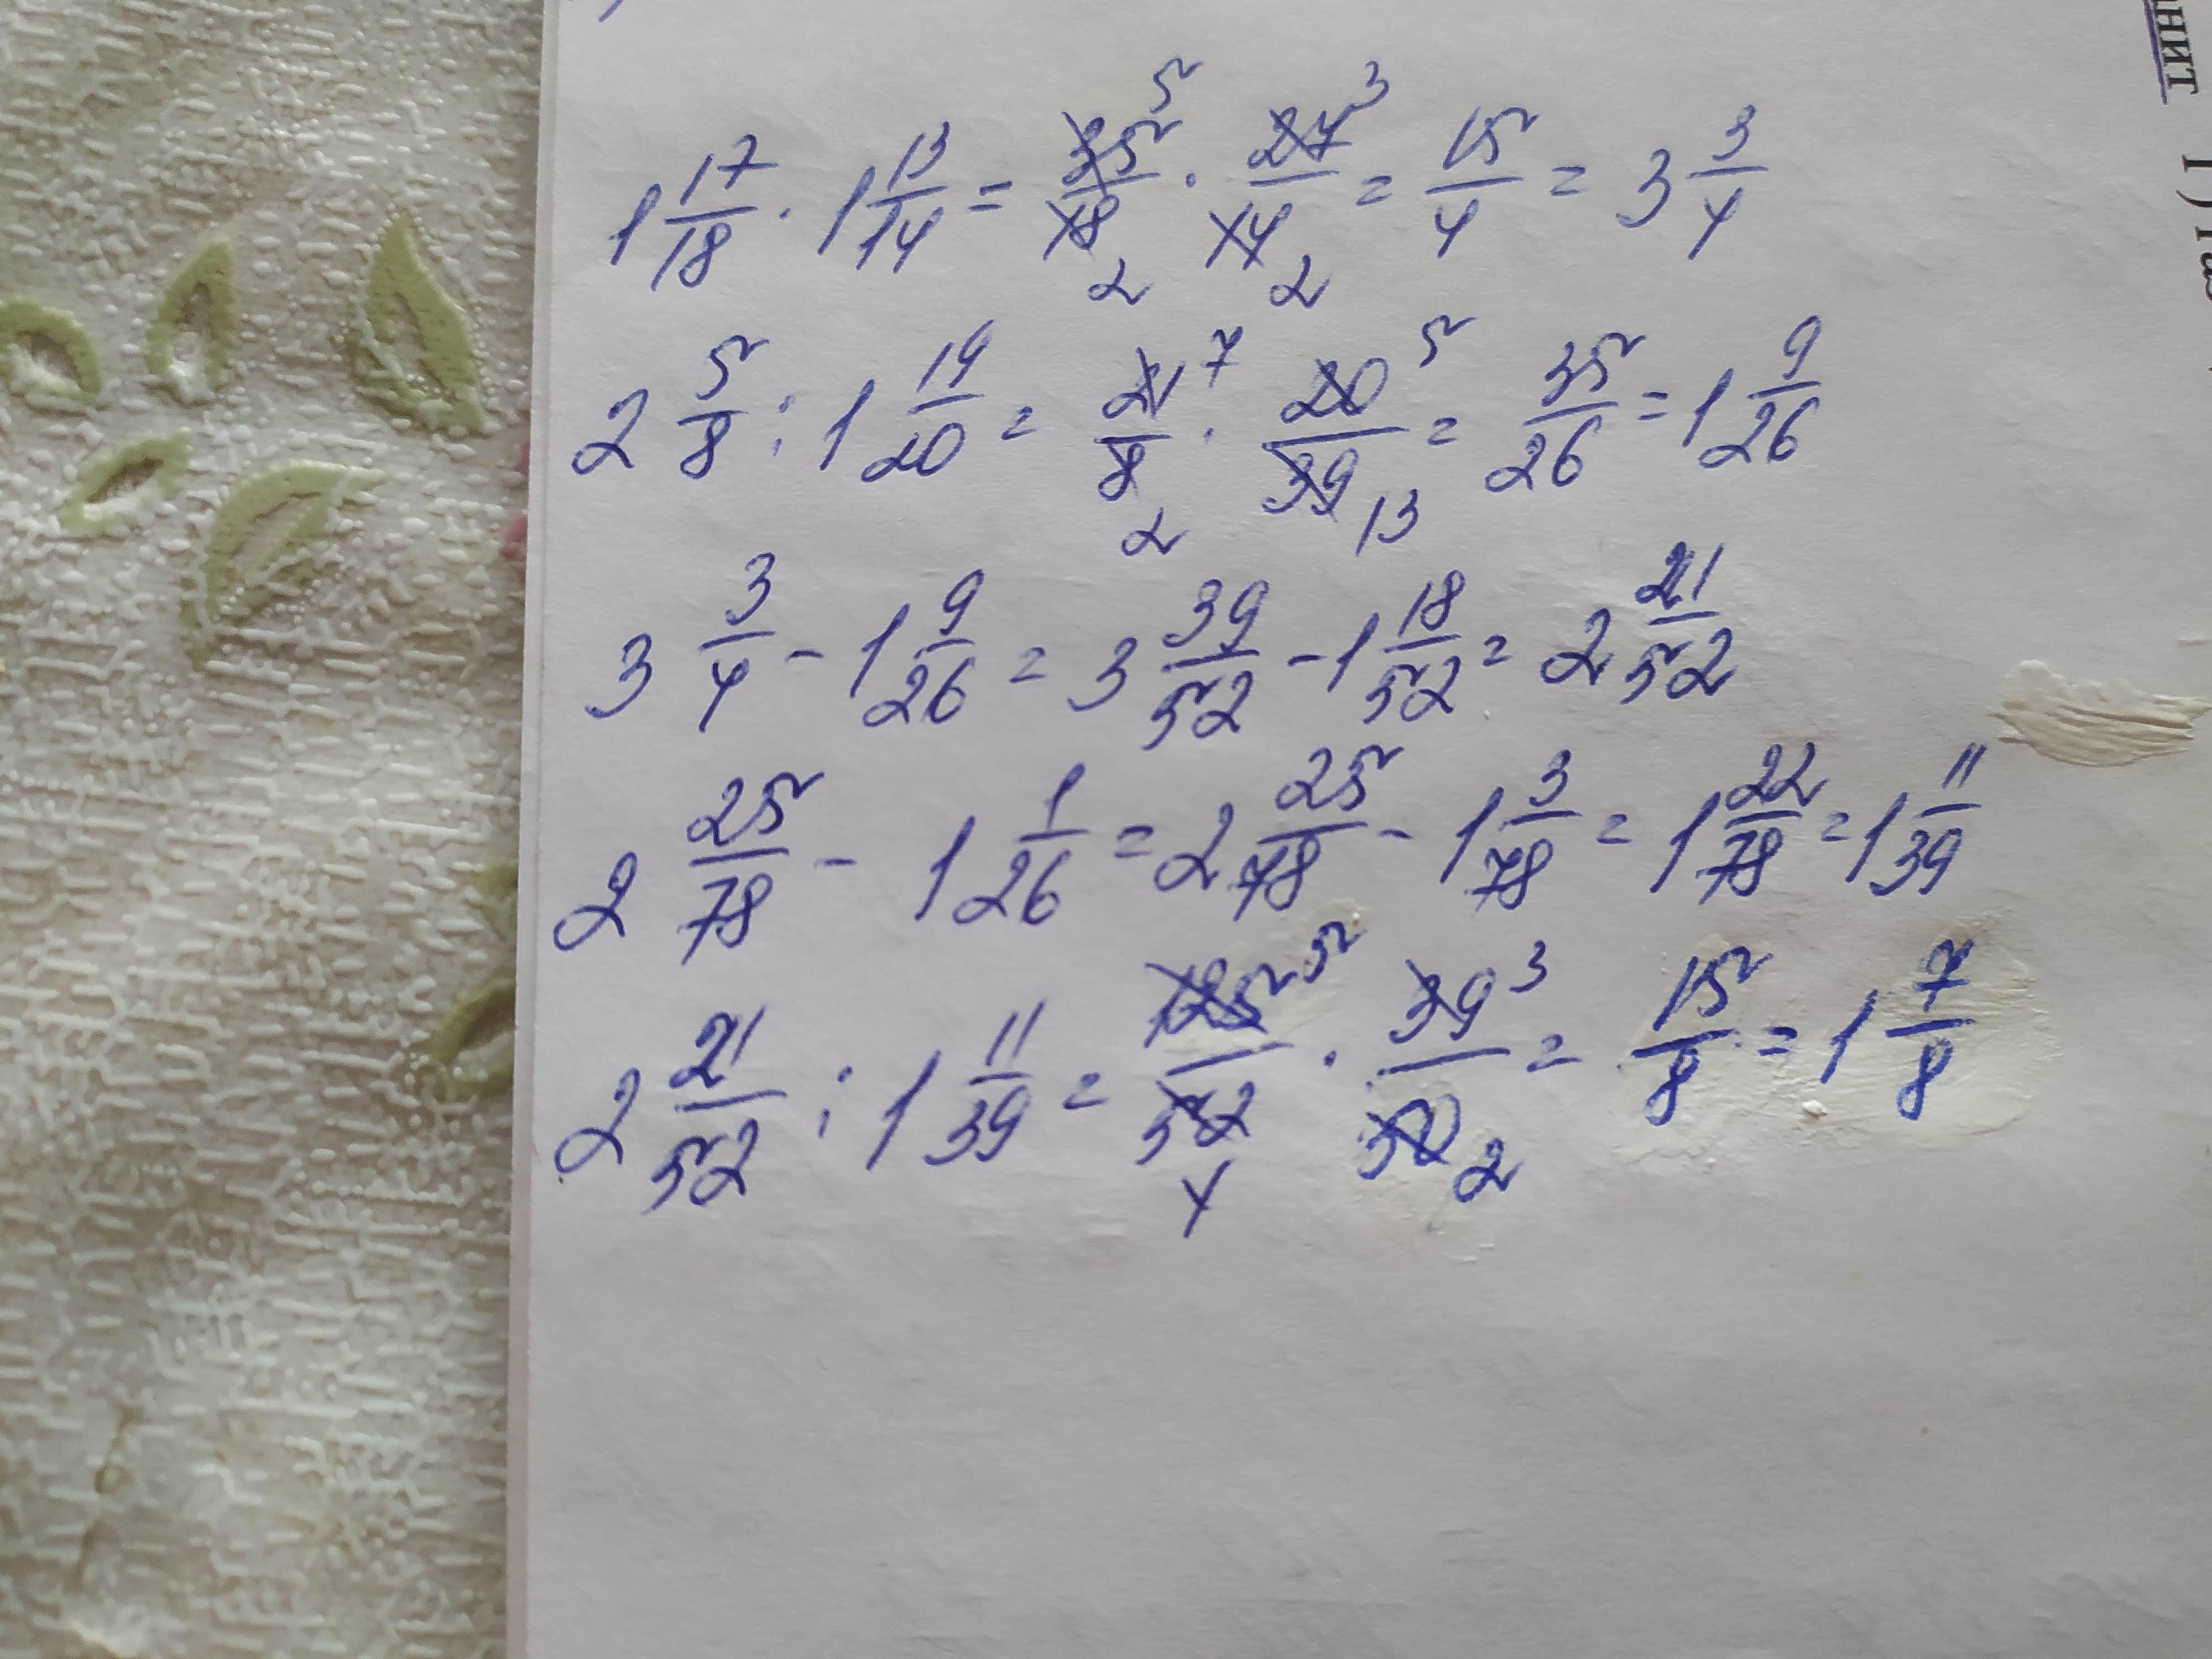 1 17/18 · 1 13/14 = 35/18 5 2 · 27/14 3 2 = 15/4 = 3 3/4
2 5/8 : 1 19/20 = 21/8 7 2 · 20/39 5 13 = 35/26 = 1 9/26
3 3/4 - 1 9/26 = 3 39/52 - 1 18/52 = 2 21/52
2 25/78 - 1 1/26 = 2 25/78 - 1 3/78 = 1 22/78 = 1 11/39
2 21/52 : 1 11/39 = 125/52 5 4 · 39/50 3 2 = 15/8 = 1 7/8
нит
1)